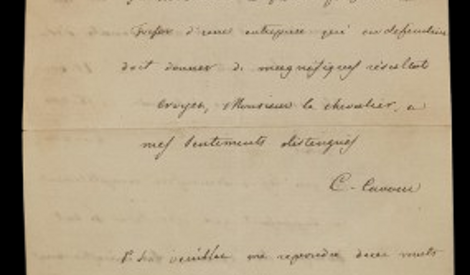 d'une entreprise qui en definitive
doit donner de magnifiques résultats
Croyez, Monsieur le chevalier, a
mes sentiments distingués
C. Cavour
me repondre deux mots